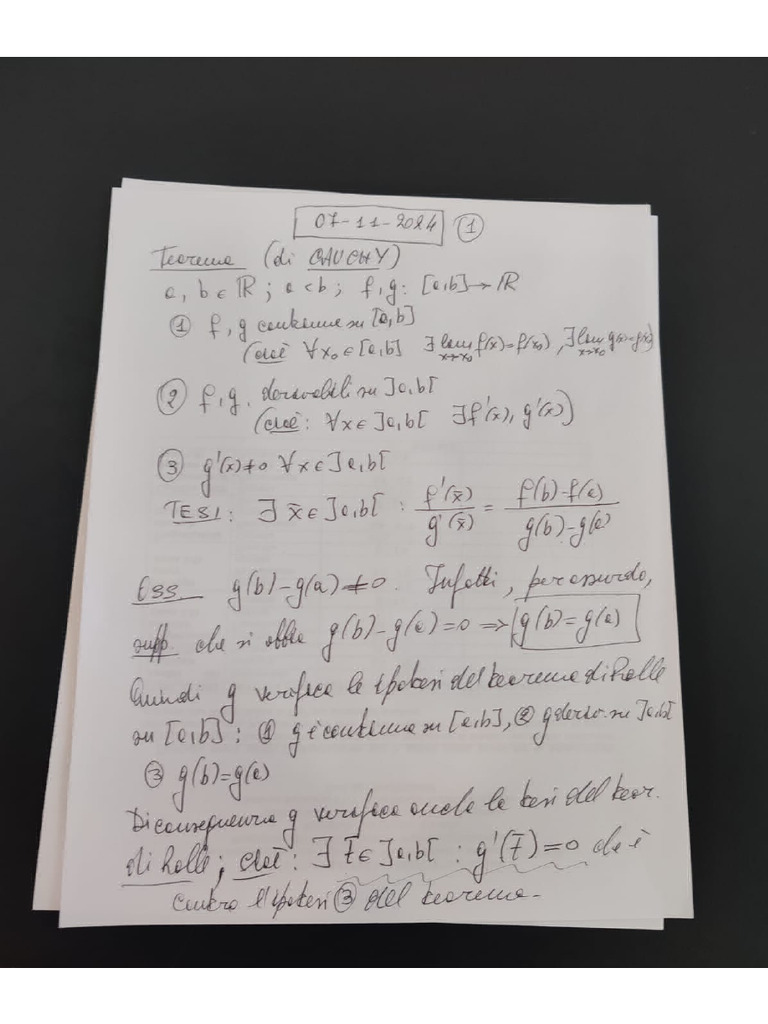 07-11-2024 ①
Teorema (di CAUCHY)
a, b ∈ ℝ ; a < b ; f, g : [a,b] → ℝ
① f, g continue su [a,b]
(cioè ∀x₀ ∈ [a,b] ∃ lim x→x₀ f(x) = f(x₀), ∃ lim x→x₀ g(x) = g(x₀)
② f, g. derivabili su ]a,b[
(cioè: ∀x ∈ ]a,b[ ∃ f'(x), g'(x))
③ g'(x) ≠ 0 ∀x ∈ ]a,b[
TESI: ∃ x̄ ∈ ]a,b[ : f'(x̄)/g'(x̄) = (f(b)-f(a))/(g(b)-g(a))
Oss. g(b)-g(a) ≠ 0. Infatti, per assurdo,
supp. che si abbia g(b)-g(a) = 0 ⇒ g(b) = g(a)
Quindi g verifica le ipotesi del teorema di Rolle
su [a,b] : ① g è continua su [a,b], ② g deriv. su ]a,b[
③ g(b)=g(a)
Di conseguenza g verifica anche la tesi del teor.
di Rolle; cioè: ∃ t̄ ∈ ]a,b[ : g'(t̄) = 0 che è
contro l'ipotesi ③ del teorema.-